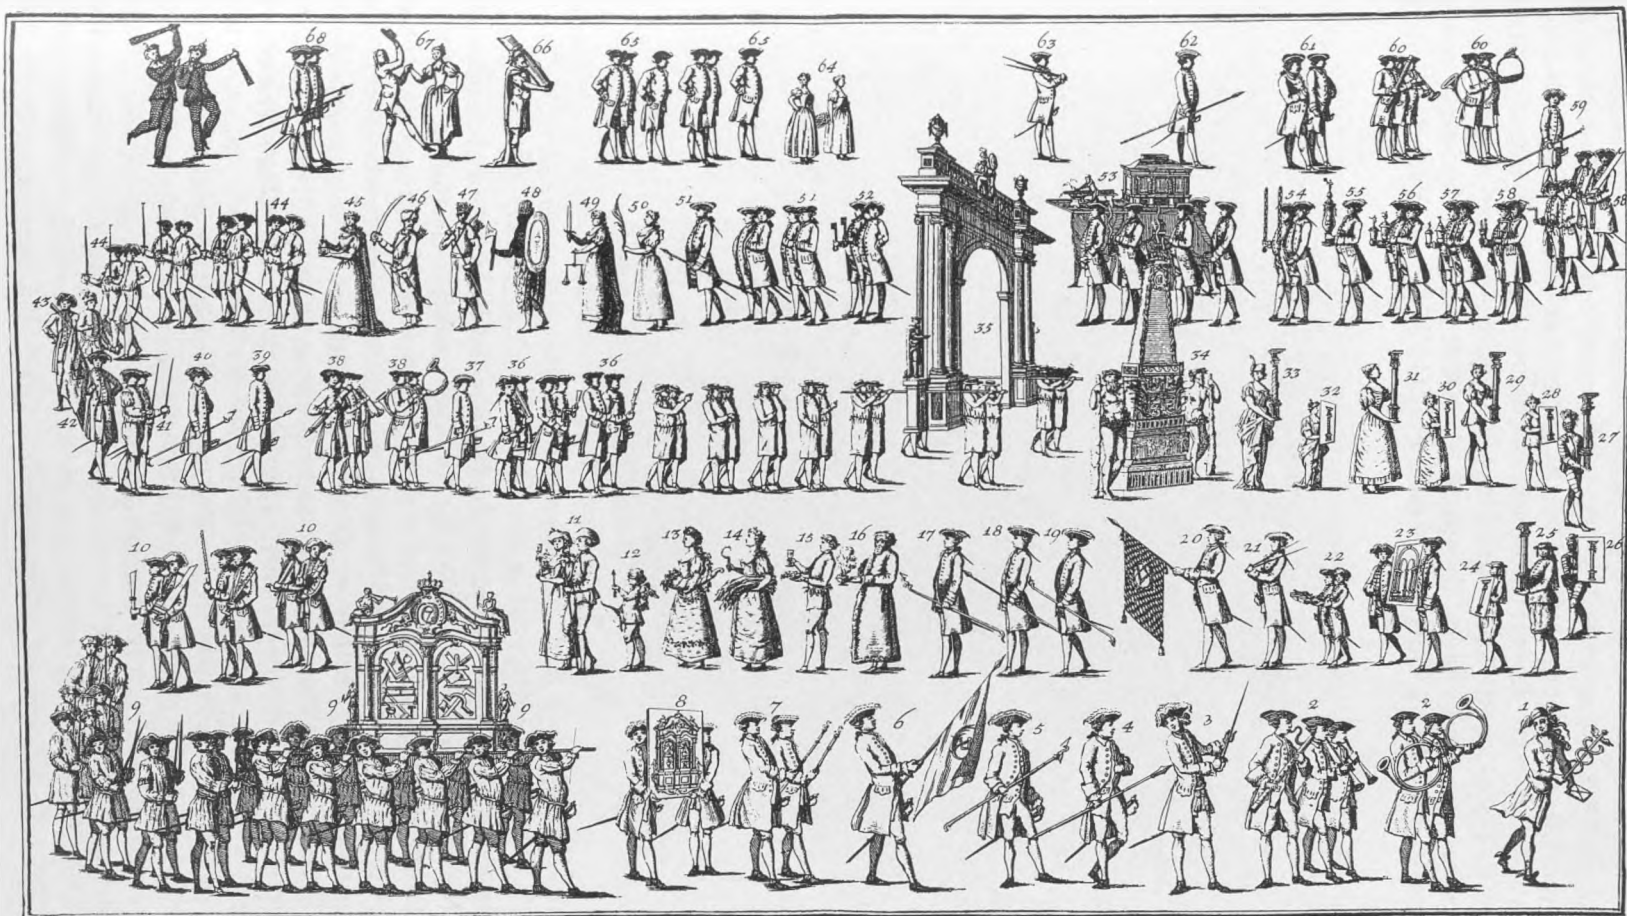 68 67 66 65 65 64 63 62 61 60 60 59
44 44 45 46 47 48 49 50 51 51 52 53 54 55 56 57 58 58
43 42 41 40 39 38 38 37 36 36 35 34 33 32 31 30 29 28 27
10 10 11 12 13 14 15 16 17 18 19 20 21 22 23 24 25 26
9 9 9 8 7 6 5 4 3 2 2 1